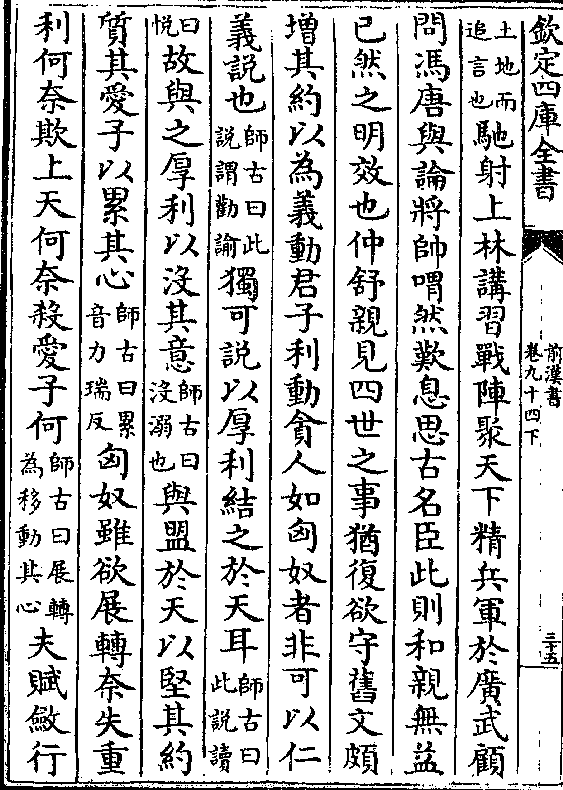 欽定四庫全書
前漢書
卷九十四下
三十五
土地而追言也馳射上林講習戰陣聚天下精兵軍於廣武顧
問馮唐與論將帥喟然歎息思古名臣此則和親無益
已然之明效也仲舒親見四世之事猶復欲守舊文頗
增其約以為義動君子利動貪人如匈奴者非可以仁
義說也師古曰此說謂勸諭獨可說以厚利結之於天耳師古曰此說讀
曰悅故與之厚利以沒其意師古曰沒溺也與盟於天以堅其約
質其愛子以累其心師古曰累音力瑞反匈奴雖欲展轉奈失重
利何奈欺上天何奈殺愛子何師古曰展轉為移動其心夫賦斂行